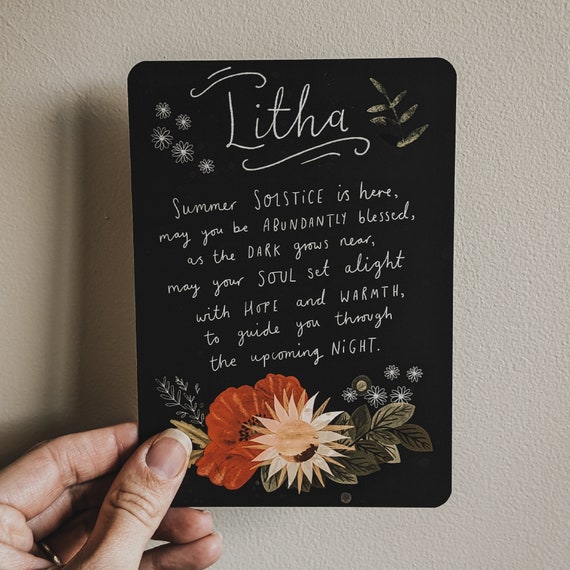 Litha
Summer SOLSTICE is here,
may you be ABUNDANTLY blessed,
as the DARK grows near,
may your SOUL set alight
with HOPE and WARMTH,
to guide you through
the upcoming NIGHT.